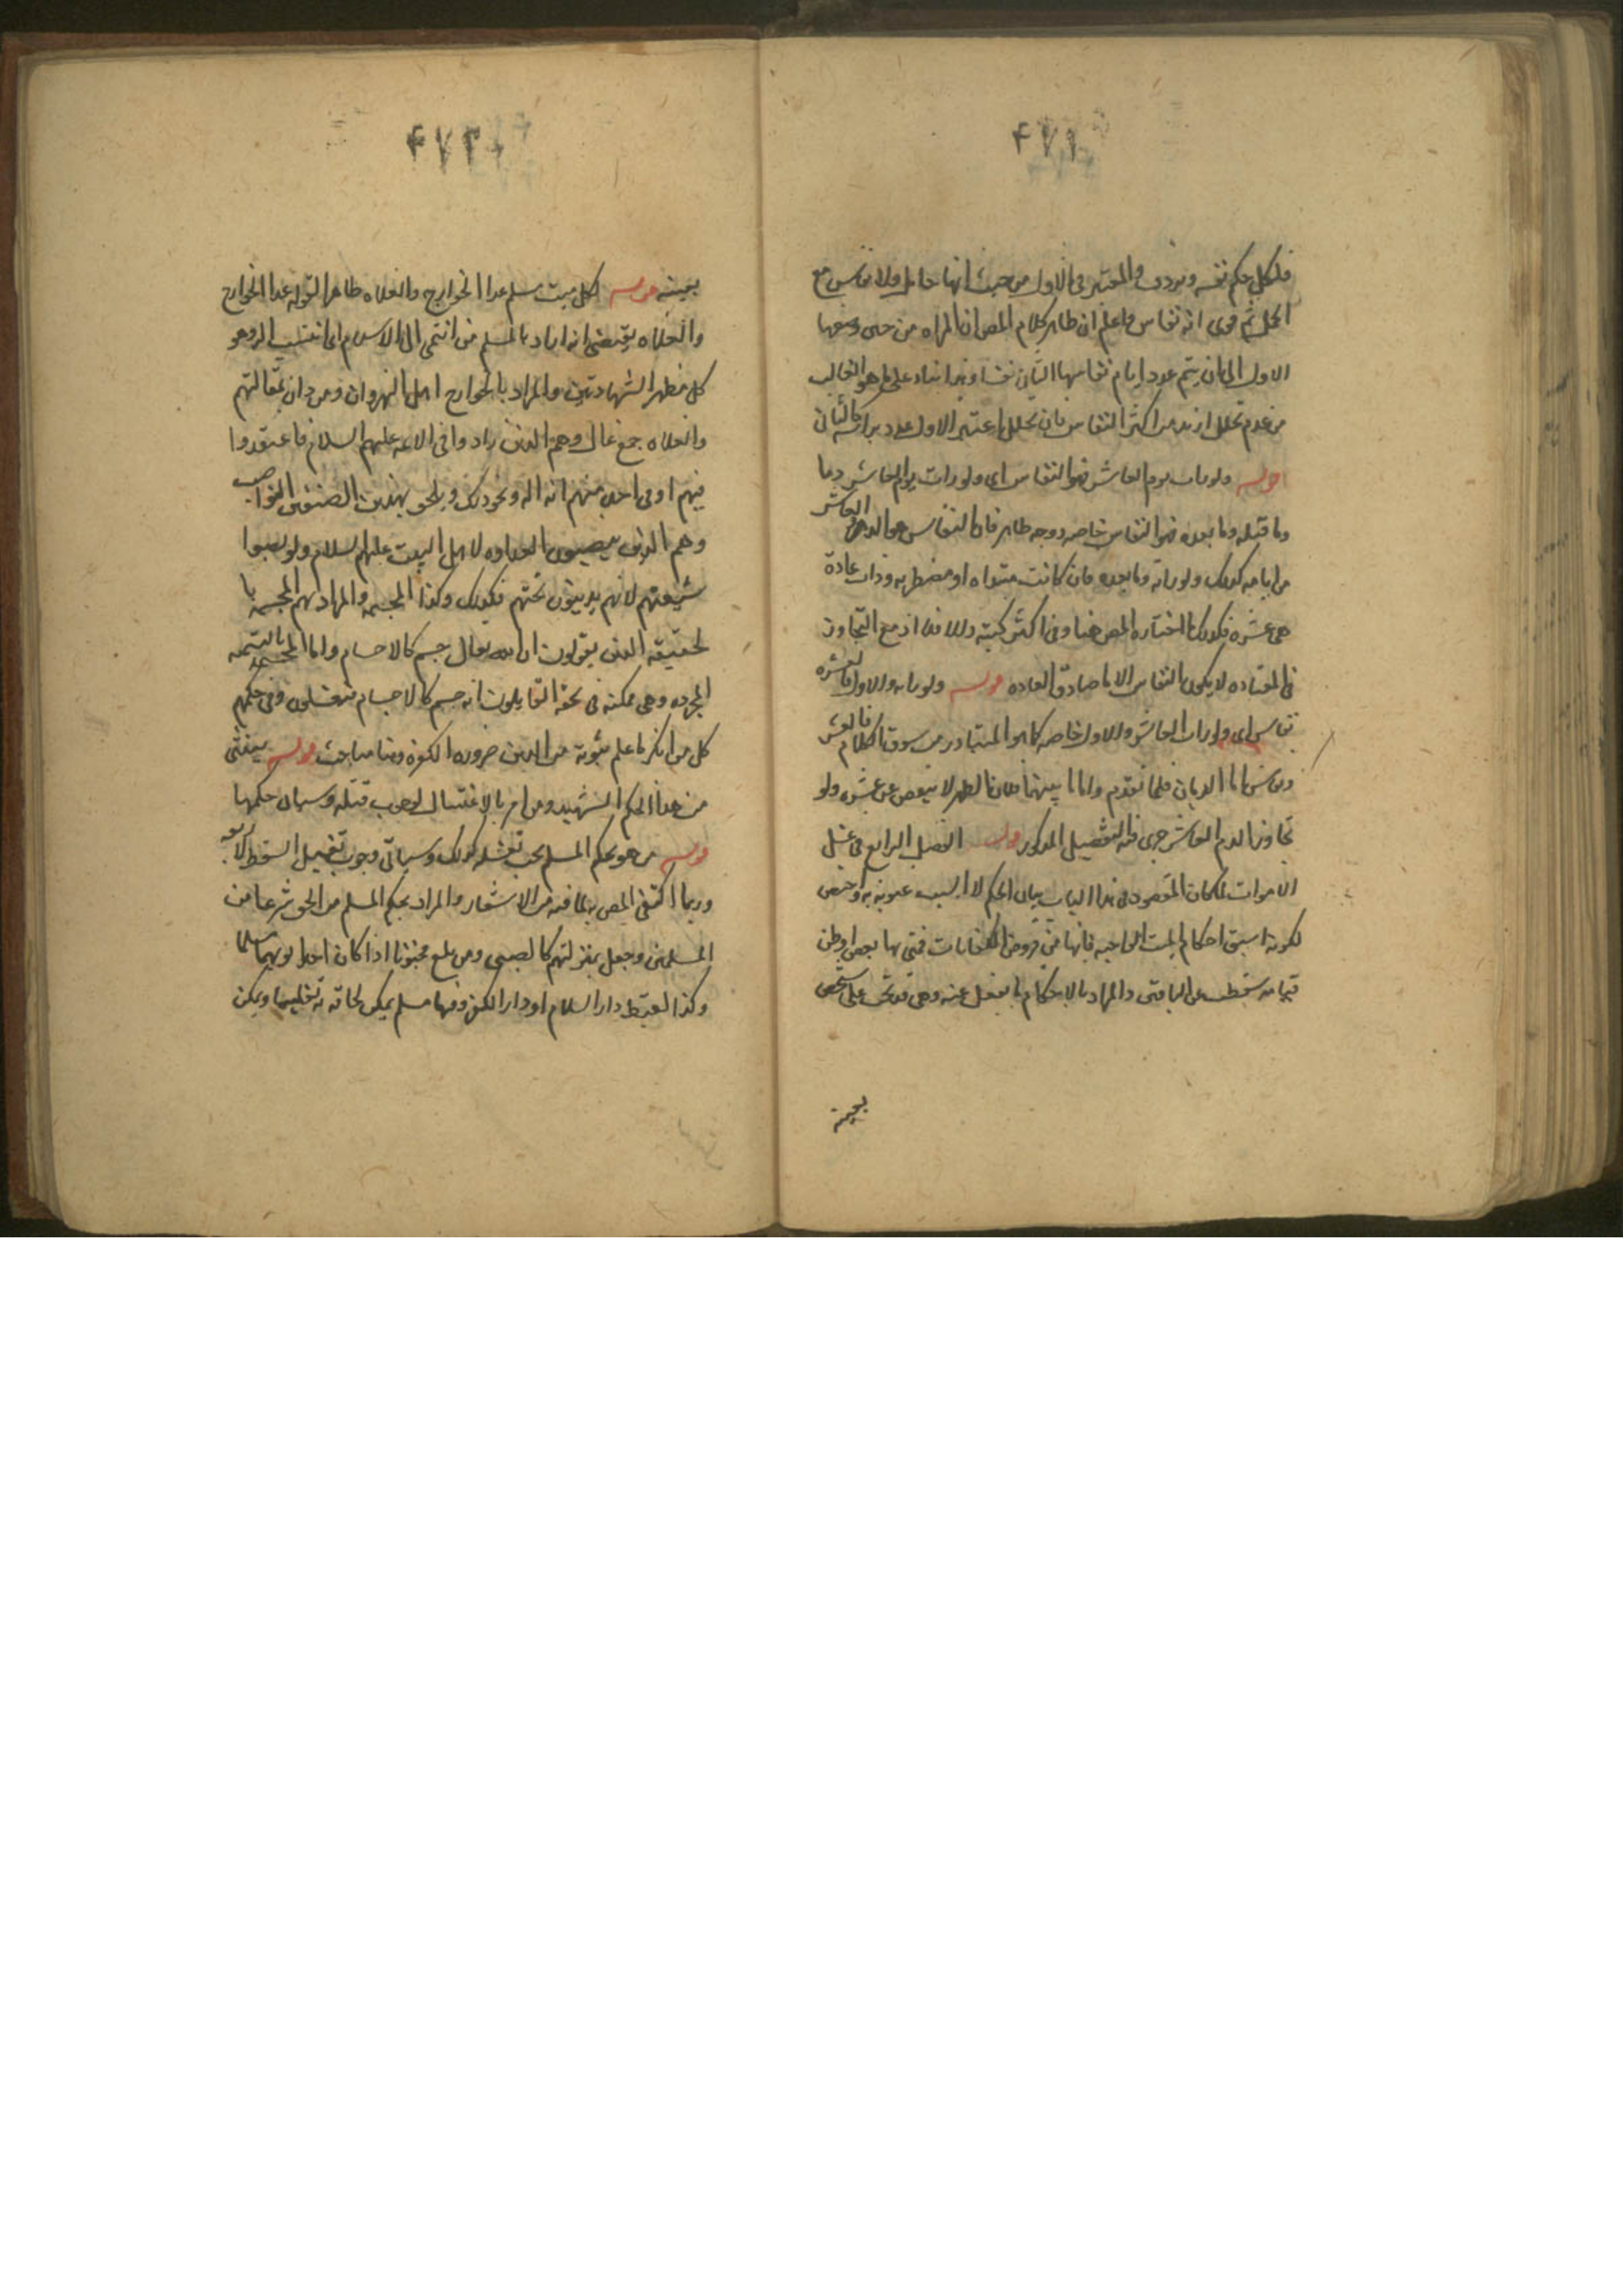 ۴۷۱
فلكل حكم نفسه وتردد والمعتبر في الاول من حيث انها حامل ولا نفاس مع
الحمل ثم قوى انه نفاس واعلم ان ظاهر كلام المص ان المراه من حين وضعها
الاول الى ان يتم عدد ايام نفاسها الثاني نفساء وهذا بناء على ما هو الغالب
من عدم تخلل ازيد من اكثر النفاس فان تخلل اعتبر الاول عدد براسه كالثاني
قوله ولو رات يوم العاشر فهو النفاس اى ولو رات يوم العاشر دما
وما قبله وما بعده فهو النفاس خاصه ووجه ظاهر فان النفاس هو الدم العاشر
من ايامه كذلك ولو راته وما بعده فان كانت مبتداه او مضطربه وذات عادة
هى عشره فكذلك لما اختاره المص هنا وفى اكثر كتبه والا فلا اذ مع التجاوز
فى المعتاده لا يكون النفاس الا ما صادف العاده قوله ولو راته والاول فالعشره
نفاس اى ولو رات العاشر والاول خاصه كما هو المتبادر من سوق الكلام فالعشر
نفاس اما الدمان فلما تقدم واما ما بينهما فلان الطهر لا ينقص عن عشره ولو
تجاوز الدم العاشر جرى فيه التفصيل المذكور قوله الفصل الرابع فى غسل
الاموات لما كان المقصود فى هذا الباب بيان الحكم لا السبب عنونه به وخص
لكونه اسبق احكام الميت الواجبه فانها من فروض الكفايات فمتى بها بعض او ظن
قيامه سقطت عن الباقين والمراد بالاحكام ما يفعل عنه وهى قد تجب على شخص
بعينه
۴۷۲
بعينه قوله لكل ميت مسلم عدا الخوارج والغلاه ظاهر القوله عدا الخوارج
والغلاه يقتضى انه اراد بالمسلم من انتمى الى الاسلام اى انتسب اليه وهو
كل مظهر الشهادتين والمراد بالخوارج اهل النهروان ومن دان بمقالتهم
والغلاه جمع غال وهم الذين زادوا فى الائمه عليهم السلام فاعتقدوا
فيهم او فى احد منهم انه اله ونحو ذلك ويلحق بهذين الصنفين النواصب
وهم الذين ينصبون العداوه لاهل البيت عليهم السلام ولو نصبوا
شيعتهم لانهم يدينون بحبهم فكذلك وكذا المجسمه والمراد بهم المجسمه با
لحقيقه الذين يقولون ان الله تعالى جسم كالاجسام واما المجسمه بالتسميه
المجرده وهى ممكنه فى نحو القايلون انه جسم كالاجسام فيغسلون وفى حكمهم
كل من انكر ما علم ثبوته من الدين ضروره لكفره وهنا مباحث قوله يستثنى
من هذا الحكم الشهيد ومن امر بالاغتسال لوجوب قتله وسيأتى حكمهما
قوله من هو بحكم المسلم يجب تغسيله كذلك وسياتى وجوب تغسيل السقط لاربعه
وربما اكتفى المص بهما لما فيه من الاشعار والمراد بحكم المسلم من الحق شرعا من
المسلمين وجعل بمنزلتهم كالصبى ومن بلغ مجنونا اذا كان احد ابويهما مسلما
وكذا لقيط دار السلام او دار الكفر وفيها مسلم يمكن لحاقه به تغليبا ويمكن